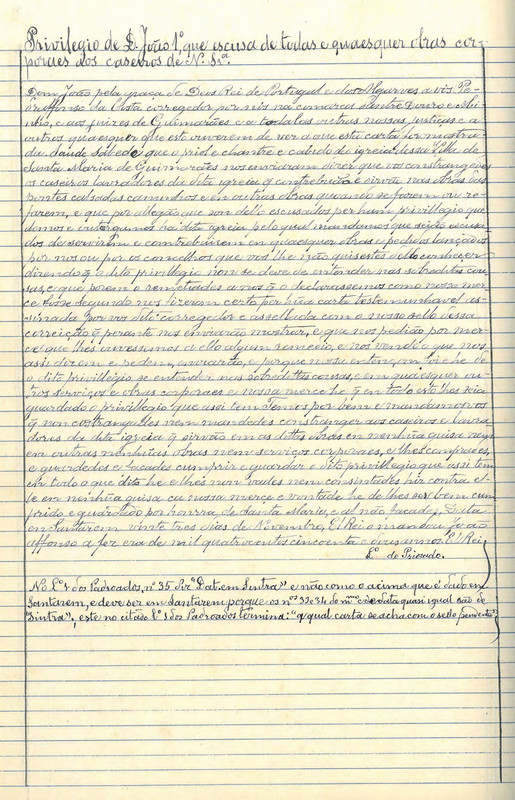 Privilegio de D. João 1º, que escusa de todas e quaesquer obras cor-
poraes aos caseiros de N. Srª.
Dom João pela graça de Deus Rei de Portugal e dos Algarves a vós Pe-
dreaffonso da Costa corregedor por nós na comarca dantre Douro e Mi-
nho, e aos juizes de Guimarães e a todalas outras nossas justiças e a
outros quaesquer que esto ouverem de ver a que esta carta for mostra-
da. saude sabede que o priol e chantre e cabido da igreja de
Santa Maria de Guimarães nos enviaram dizer que vos constrangedes
os caseiros lavradores da dita igreja q contrebuão e sirvão nas obras das
pontes calsadas caminhos e em outras obras quando se fazem ou re-
fazem, e que por allegação que som dello escusados per hum privillegio que
démos e outorgamos há dita igreja pelo qual mandamos que sejão escusa-
dos de servirem e contrebuirem em quaesquer obras e pedidos lançados
por nos ou por os concelhos que vos lhe não quisestes dello conhecer
dizendo q o dito privilegio nom se deve de entender nas sobreditas cou-
sas, e que porem o remetades a nos q o declarassemos como nossa mer-
ce fosse segundo nos fizeram certo por hũa carta testemunhavel as-
sinada por vos dito corregedor e assellada com o nosso sello dessa
correição q perante nos enviarão mostrar, e que nos pedião por mer-
cê que lhes ouvessimos a ello algum remedio, e nos vendo o que nos
assi dizem e pedem, enviarão, e porque nossa entençom foi e he de
o dito privillegio se entender nas sobreditas cousas, e em quaesquer ou-
tros serviços e obras corporaes e nossa merce he q em todo este lhes seja
guardado o privillegio que assi tem Temos por bem e mandamosvos
q non costranguaes nem mandedes constranger aos caseiros e lavra-
dores da dita igreja q sirvão em as dittas obras em nenhũa guisa nem
em outras nenhũas obras nem serviços corporaes, e lhes compraes,
e guardedes e façades cumprir e guardar o dito privillegio que assi tem
em todo o que dito he e lhes nom vades nem consintades hir contra el-
le em nenhũa guisa ca nossa merce e vontade he de lhes ser bem cum-
prido e guardado por honrra de Santa Maria, e al não façades. Data
em Santarem vinte tres dias de Novembro, El Rei o mandou joão
affonso a fez era de mil quatrocentos cincoenta e dous annos. El Rei.
Lº do Priorado.
No Lº 1 dos Padroados, nº 35 diz "Dat. em Sintra" e não como o acima que é dado em
Santarem, e deve ser em Santarem porque os nos 33 e 34 do mmo e de data quasi igual são de
"Sintra", este no citado Lº 1 dos Padroados termina: "a qual carta se acha com o sello pendente".